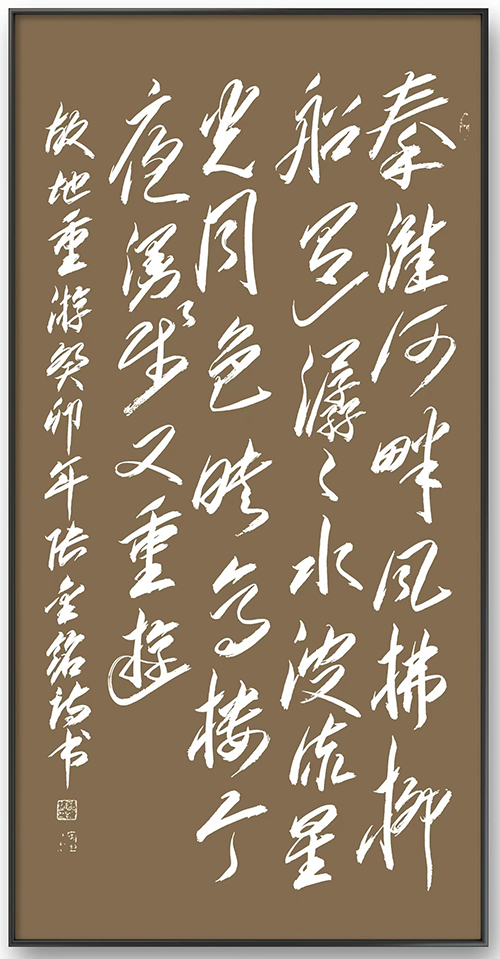 秦淮河畔风拂柳
船过潺々水波流星
光月色映高楼今
夜漫步又重游
故地重游癸卯年金铭诗书